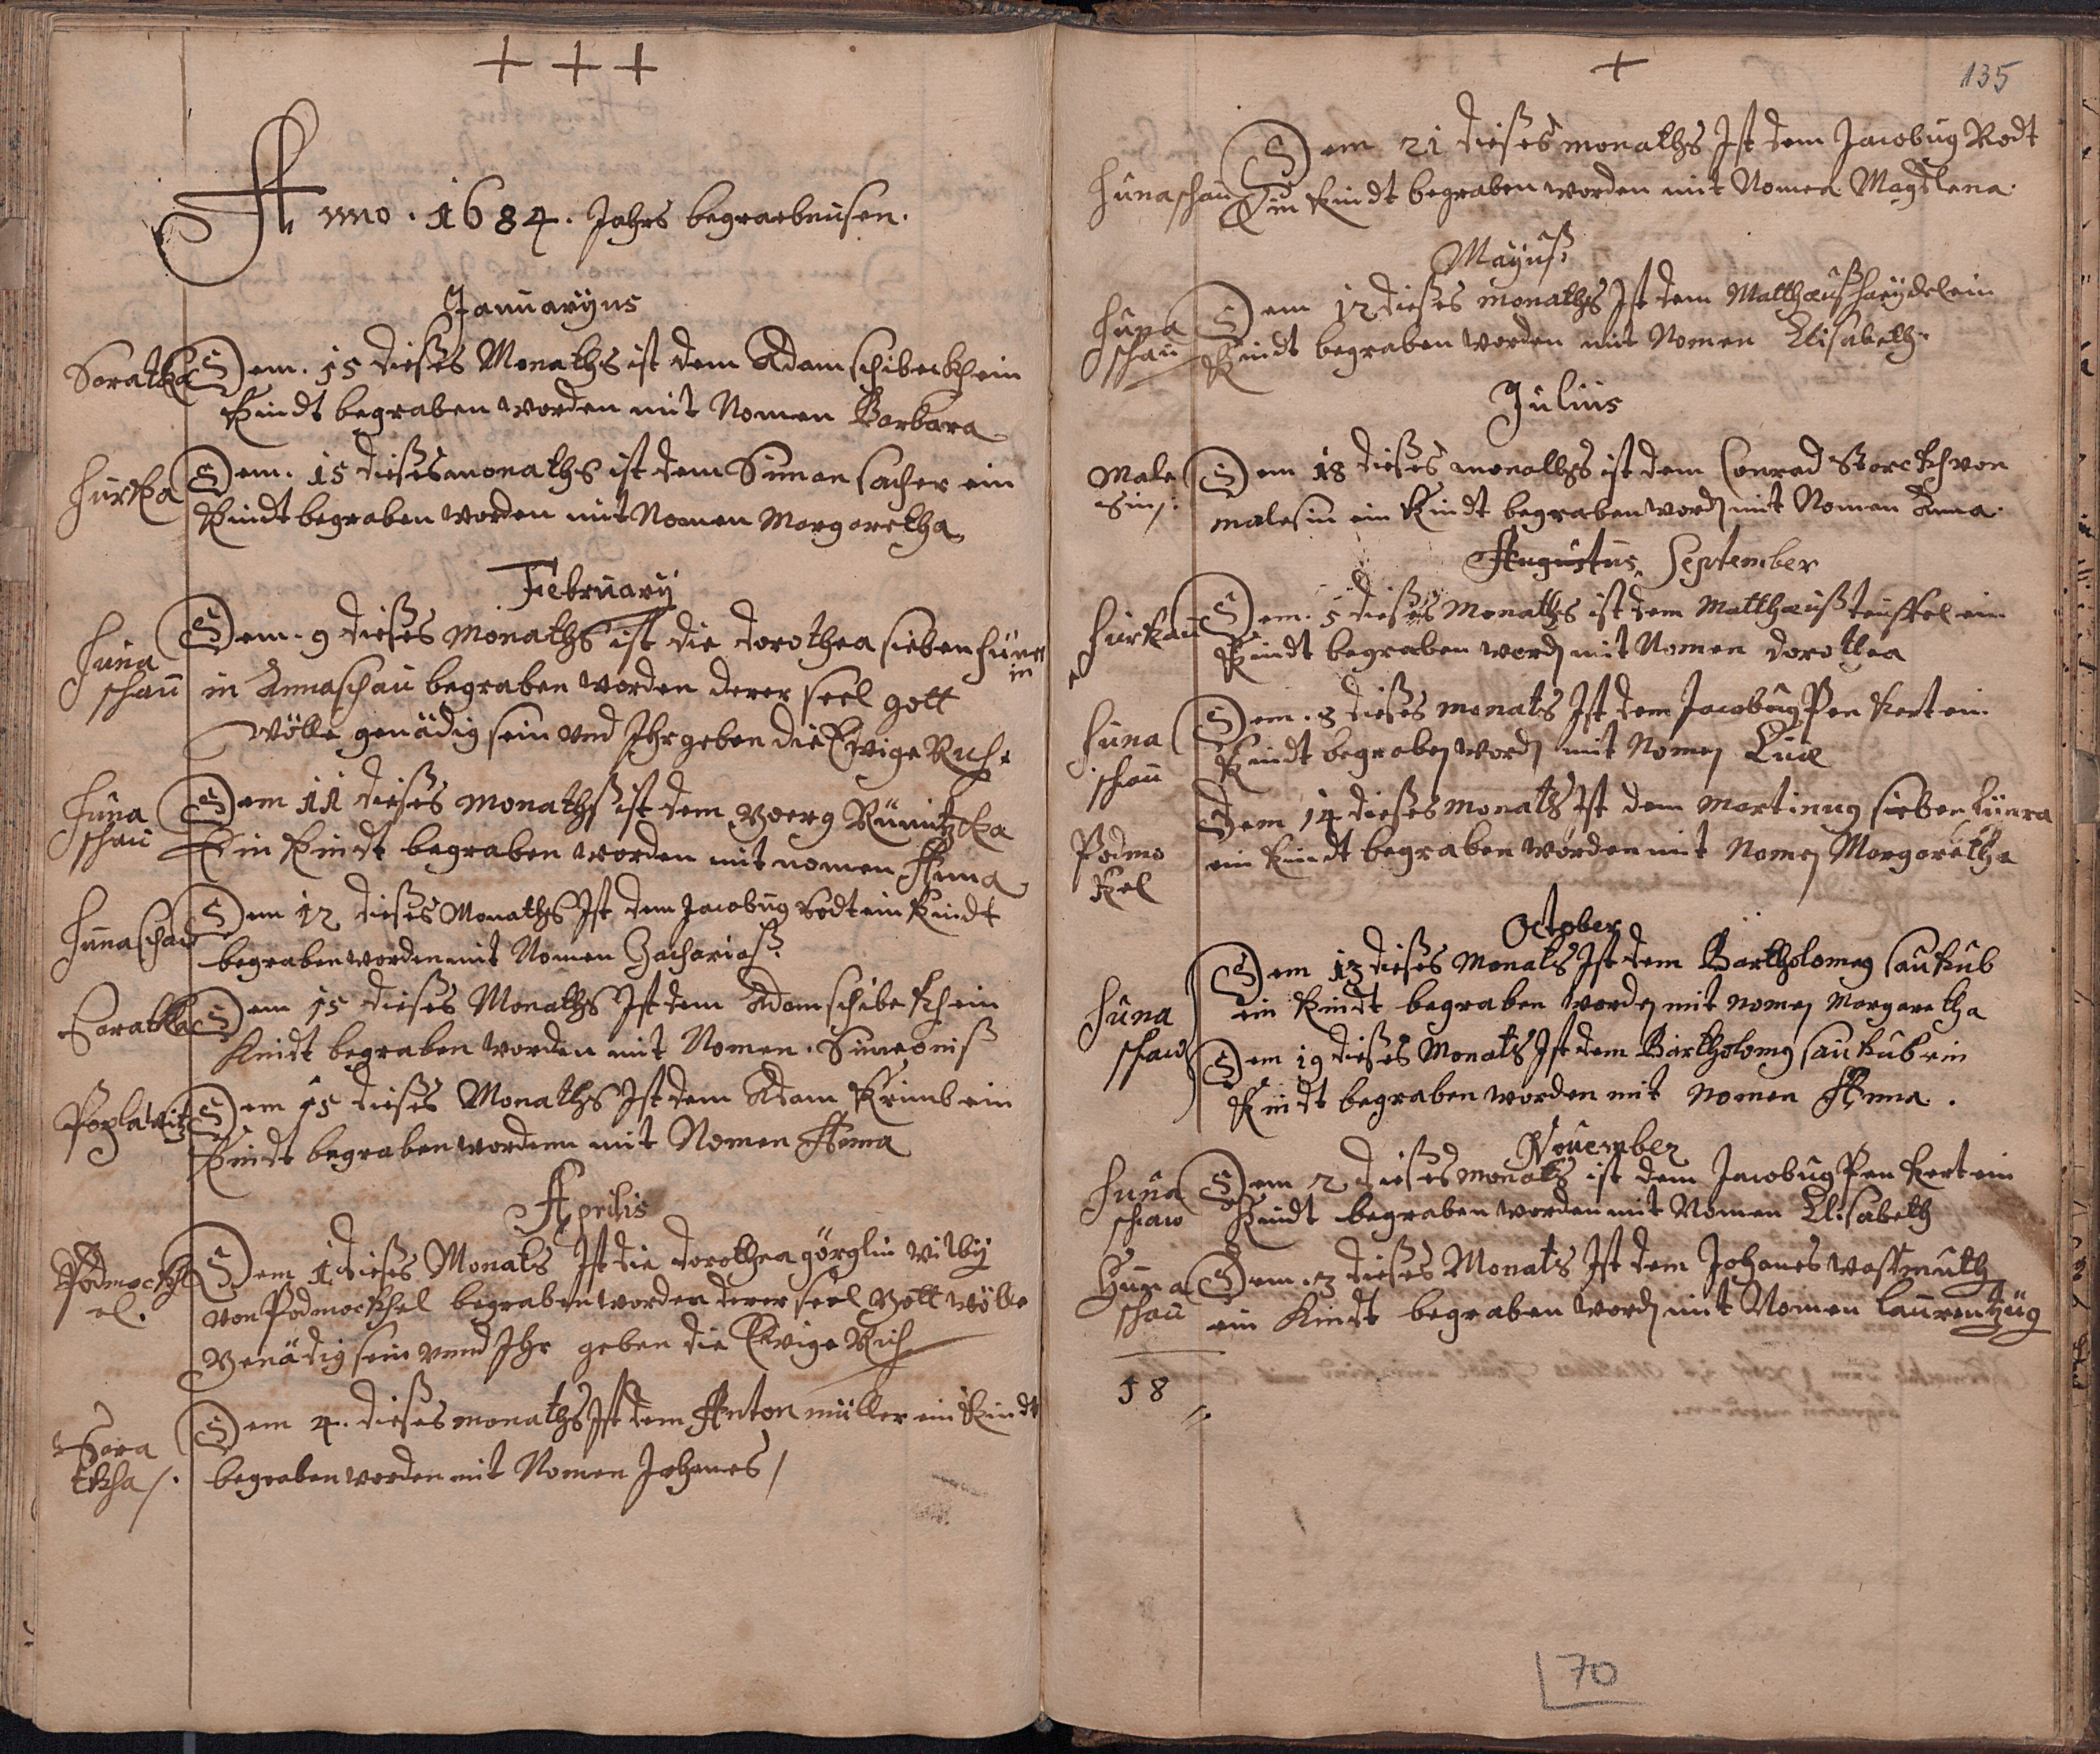 + + +
Anno . 1684 . Jahrs begraebnusen .
Januaryus
Soratka
Dem . 15 dießes Monaths ist dem Adam schibeckh ein
Kindt begraben worden mit Nomen Barbara
Hurka
Dem . 15 dießes monaths ist dem Simon sacher ein
Kindt begraben worden mit Nomen Margaretha
February
Huna
schau
Dem . 9 dießes Monaths ist die dorothea siebenhüner
in
in Annaschau begraben worden derer seel gott
wölle genädig sein vnd Ihr geben die Ewige Ruh .
Huna
schau
Dem 11 dießes monathß ist dem Georg
Ein Kindt begraben worden mit nomen Anna
Hunaschau
Dem 12 dießes Monaths Ist dem Jacobug Rodt ein Kindt
begraben worden mit Nomen Zachariaß .
Soratka
Dem 15 dießes Monaths Ist dem Adam schibekh ein
Knidt begraben worden mit Nomen . Simeoniß
Poplawitz
Dem 15 dießes Monaths Ist dem Adam Krimb ein
Kindt begraben wordenn mit Nomen Anna
Aprilis
Podmockhl
el .
Dem 1 dießes Monats Ist die dorothea görglin
von Podmockhel begraben worden derer seel Gott wölle
Genädig sein vnnd Ihr geben die Ewige Ruh
Sora
tkha /.
Dem 4 . dießes monaths Ist dem Anton müller ein Kindt
begraben worden mit Nomen Johanes /
+
135
Hunaschau
Dem 21 dießes monaths Ist dem Jacobug Rodt
Ein Kindt begraben worden mit Nomen Magdlena .
Mayuß .
Huna
schau
Dem 12 dießes monaths Ist dem Matthauß haÿdel ein
Kindt begraben worden mit Nomen Elisabeth .
Julius
Male
sin /:
Dem 18 dießes monaths ist dem Conrad Storckh von
malesin ein Kindt begraben word mit Nomen Anna .
Augustus, September
Hurkau
Dem . 5 dießes Monaths ist dem Matthauß teuffel ein
Kindt begraben word mit Nomen dorothea
Huna
schau
Dem . 8 dießes monats Ist dem Jacobug Penkert ein
Kindt begraben word mit Nomen
Podmo
kel
Dem 14 dießes monats Ist dem Martinug siebenhünra
ein Kindt begraben worden mit Nomen Margaretha
October
Huna
schaw
Dem 13 dießes Monats Ist dem Bartholomeg saukub
ein Kindt begraben worden mit nomen Margaretha
Dem 19 dießes Monats Ist dem Bartholomg saukub ein
Kindt begraben worden mit nomen Anna .
November
Huna
schaw
Dem 2 dießes monats ist dem Jacobug Penkert ein
Kindt begraben worden mit Nomen Elisabeth
Huna
schau
Dem . 3 dießes Monats Ist dem Johanes wastmuth
ein Kindt begraben word mit Nomen laurentzug
18
70